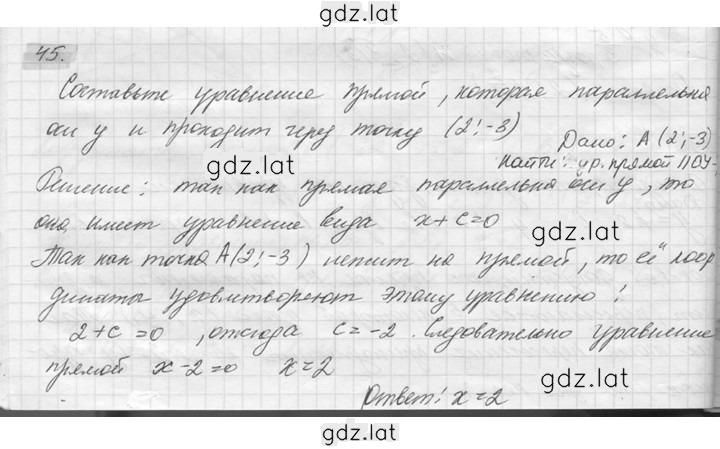 gdz.lat
45.
Составьте уравнение прямой, которая параллельна
оси у и проходит через точку (2;-3)
Дано: А (2;-3)
Найти: ур. прямой || ОУ
gdz.lat
Решение: так как прямая параллельна оси у, то
она имеет уравнение вида x+c=0
gdz.lat
Так как точка А(2;-3) лежит на прямой, то её коор
динаты удовлетворяют этому уравнению:
2+c=0, отсюда c=-2. Следовательно уравнение
прямой x-2=0 x=2
gdz.lat
Ответ: x=2
gdz.lat